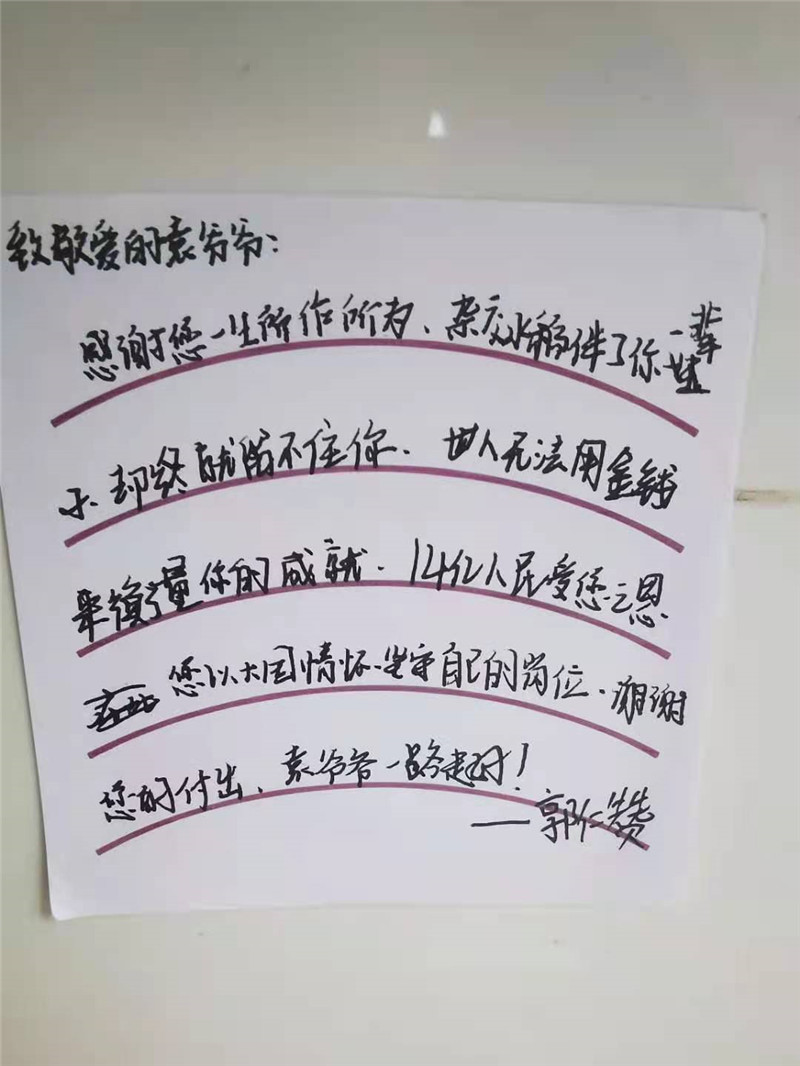 致敬爱的袁爷爷：
感谢您一生所作所为、杂交水稻伴了你一辈
子、却终就留不住你、世人无法用金钱
来衡量你的成就、14亿人民受您之恩
您以大国情怀坚守自己的岗位、谢谢
您的付出、袁爷爷一路走好！
——郭仁赞